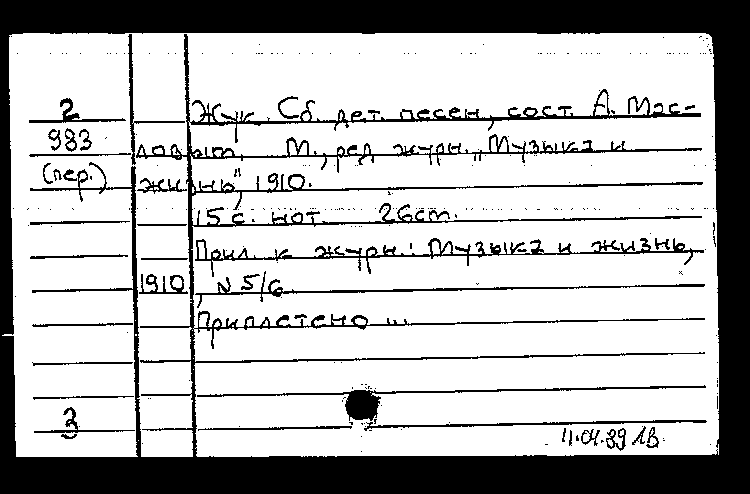 2 Жук. Сб. дет. песен, сост. А. Мас-
983 ловым. М., ред. журн. „Музыка и
(пер.) жизнь", 1910.
15 с. нот. 26cm.
Прил. к журн.: Музыка и жизнь,
1910, N 5/6.
Приплетено ...
3
11.04.89